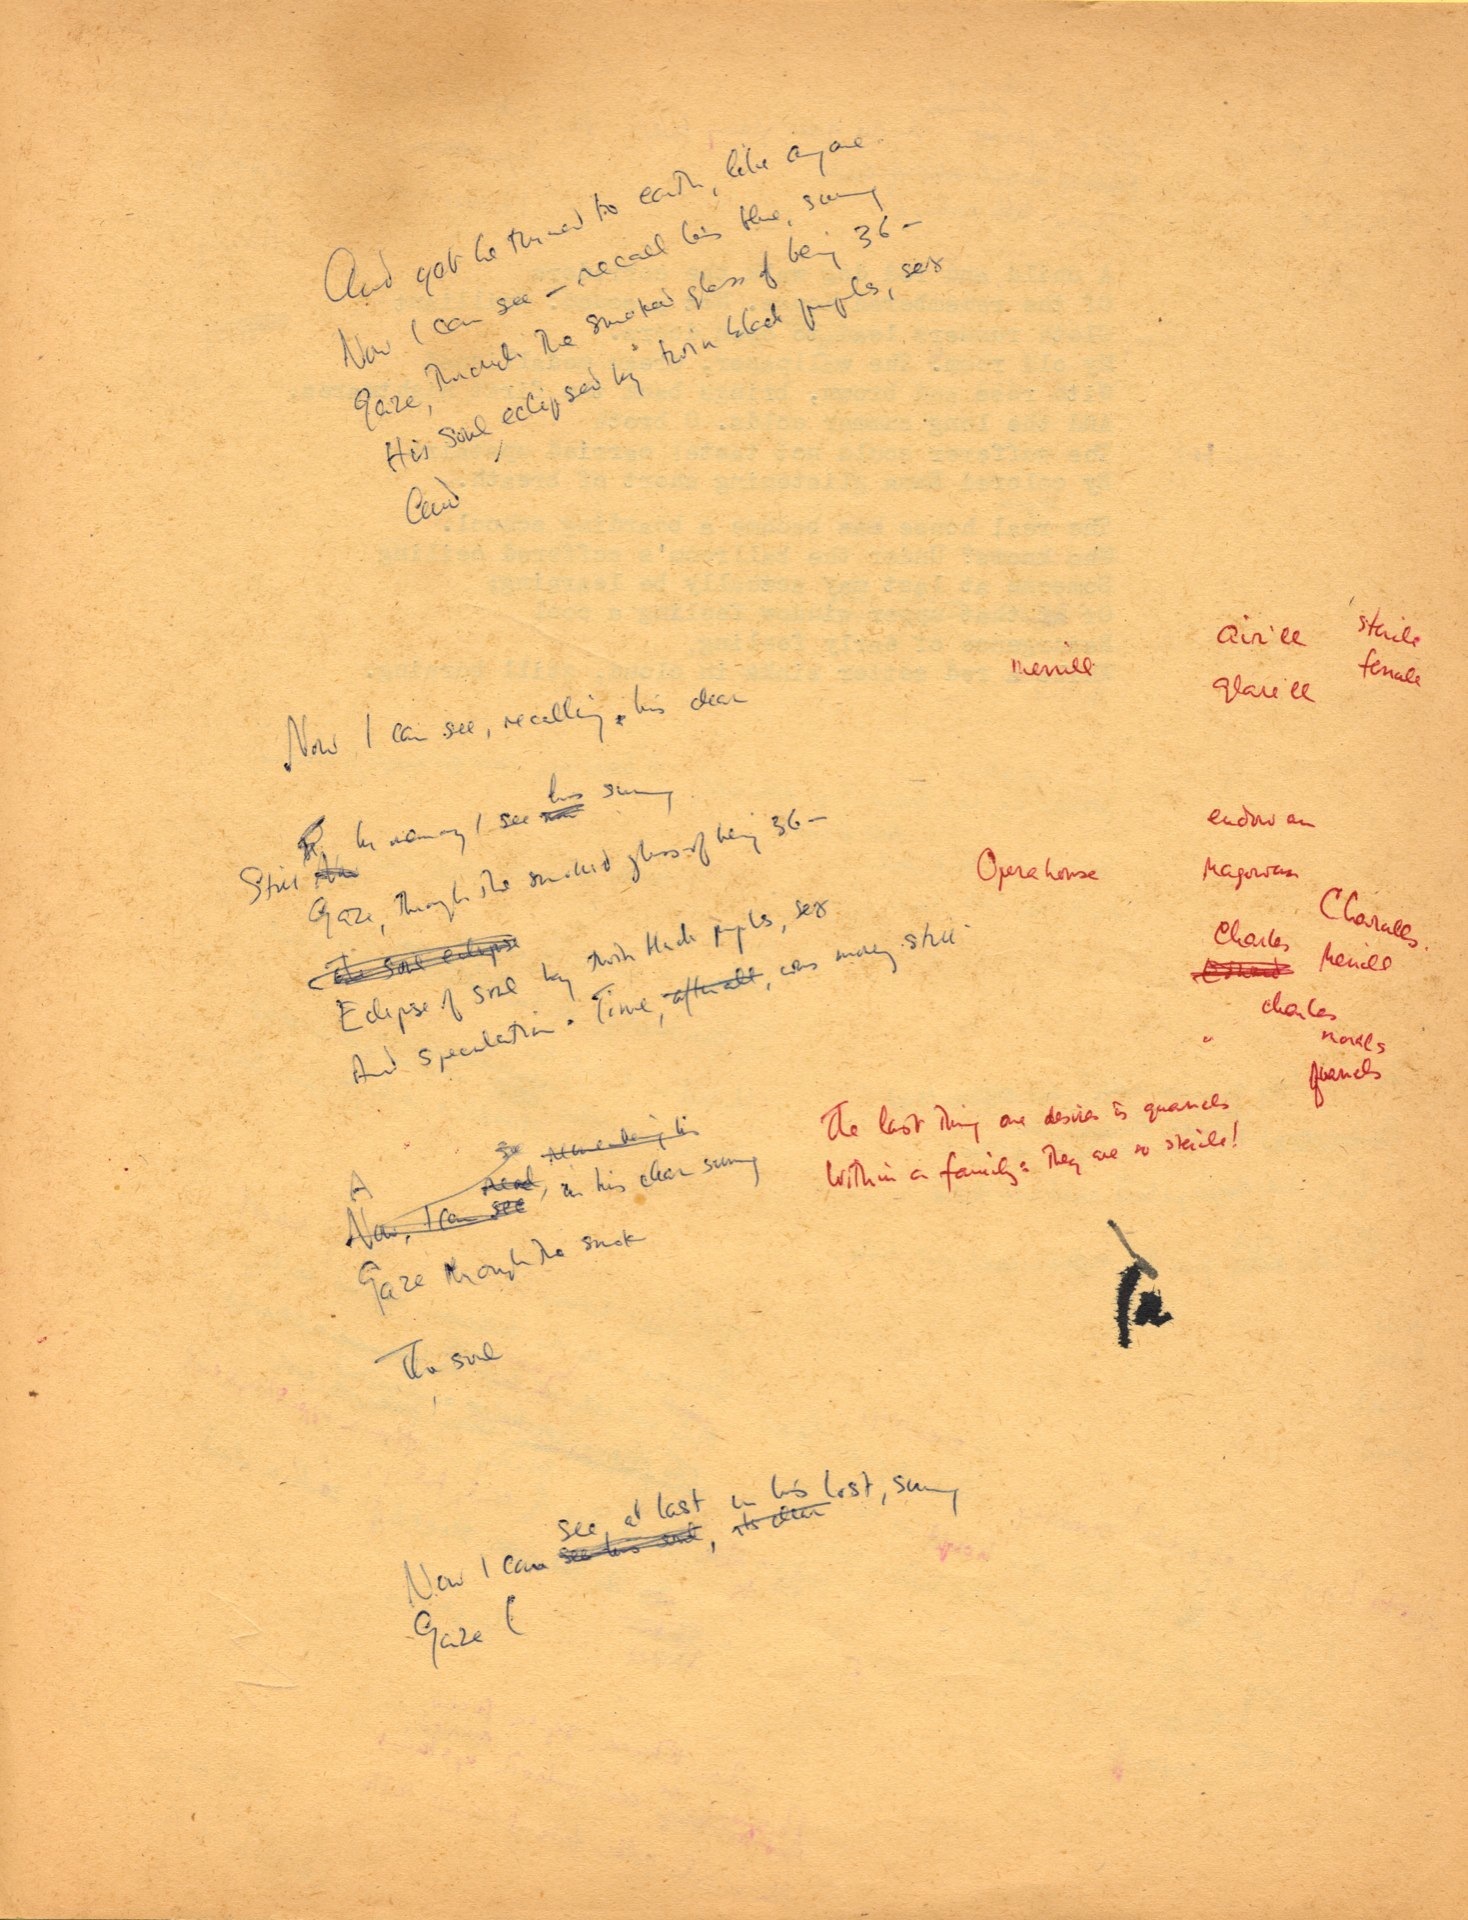 And yet he turned to earth, like anyone.
Now I can see — recall his blue, sunny
Gaze, through the smoked glass of being 36 —
His soul eclipsed by twin black pupils, sex
And
merrill
airill
sterile
glarill
female
Now I can see, recalling his clear
In memory I see his sunny
Still Now
Gaze, through the smoked glass of being 36 —
The soul eclipse
Eclipse of soul by twin black pupils, sex
And speculation. Time, after all, was money still.
endow an
Opera house
Magowan
Charalls.
Charles
Merrill
charles
"
morals
quarrels
The last thing one desires is quarrels
Within a family: they are so sterile!
A
see remembering his
Now, I can see read, in his clear sunny
Gaze through the smok
The soul
see, at last in his lost, sunny
Now I can see his soul, its clear
Gaze (